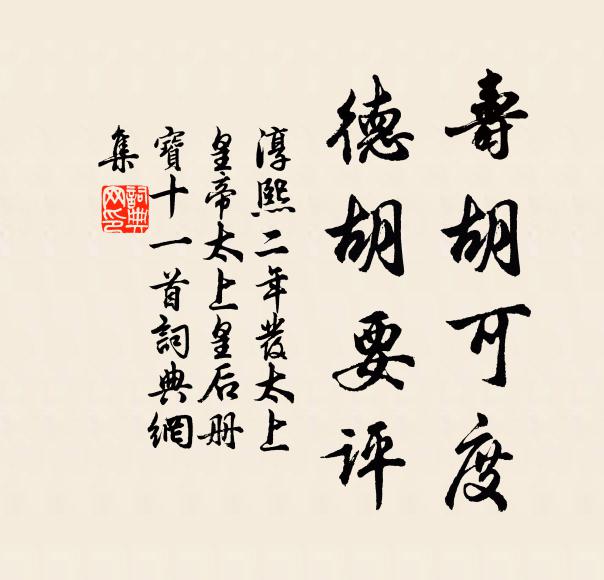 壽胡可度
德胡要評
淳熙二年發太上
皇帝太上皇后册
寶十一首詞典網
集
詞典網印